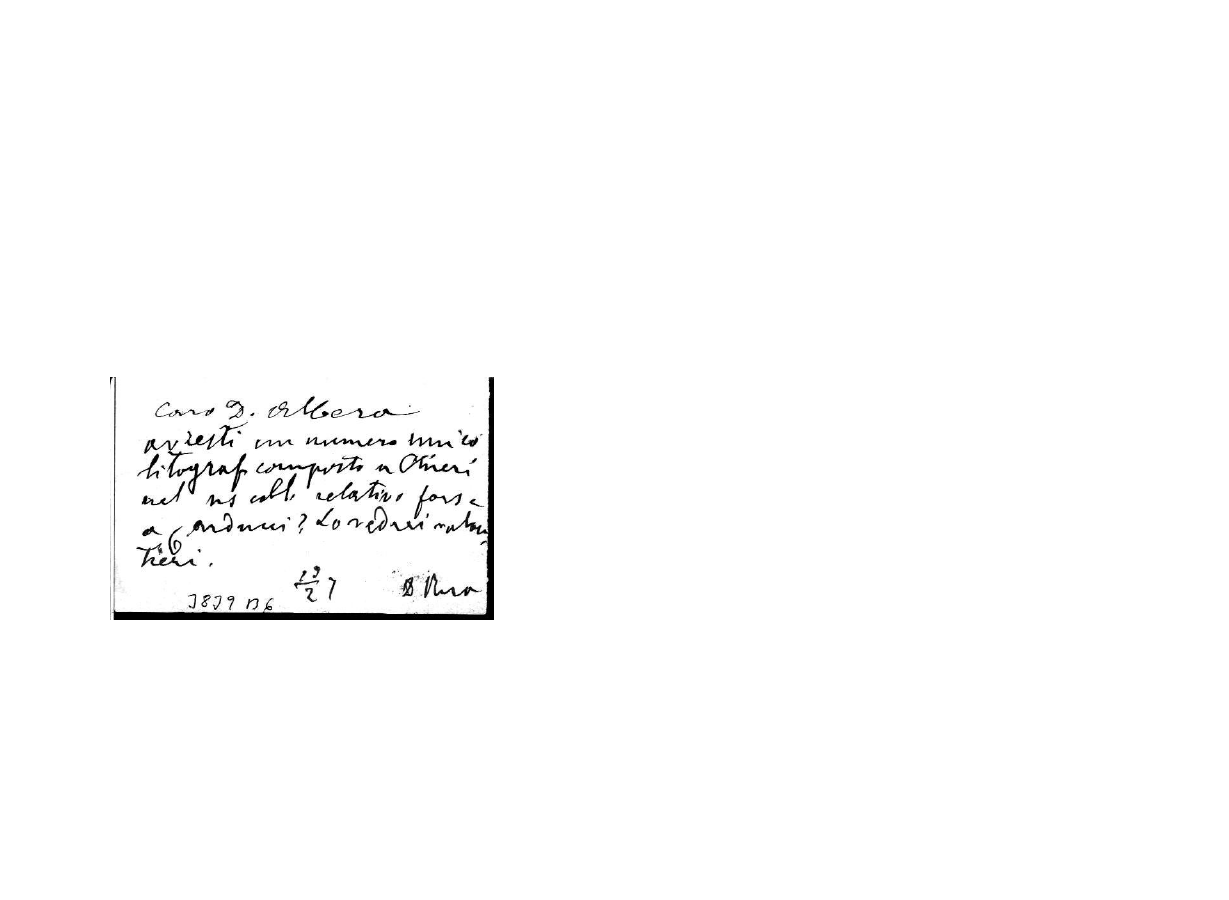 Caro D. Albera
avresti un numero unico
litograf composto a Chieri
nel ns coll. relativo forse
a Carducci? Lo vedrei volen-
tieri.
23/2 7 D Rua
3839 B6